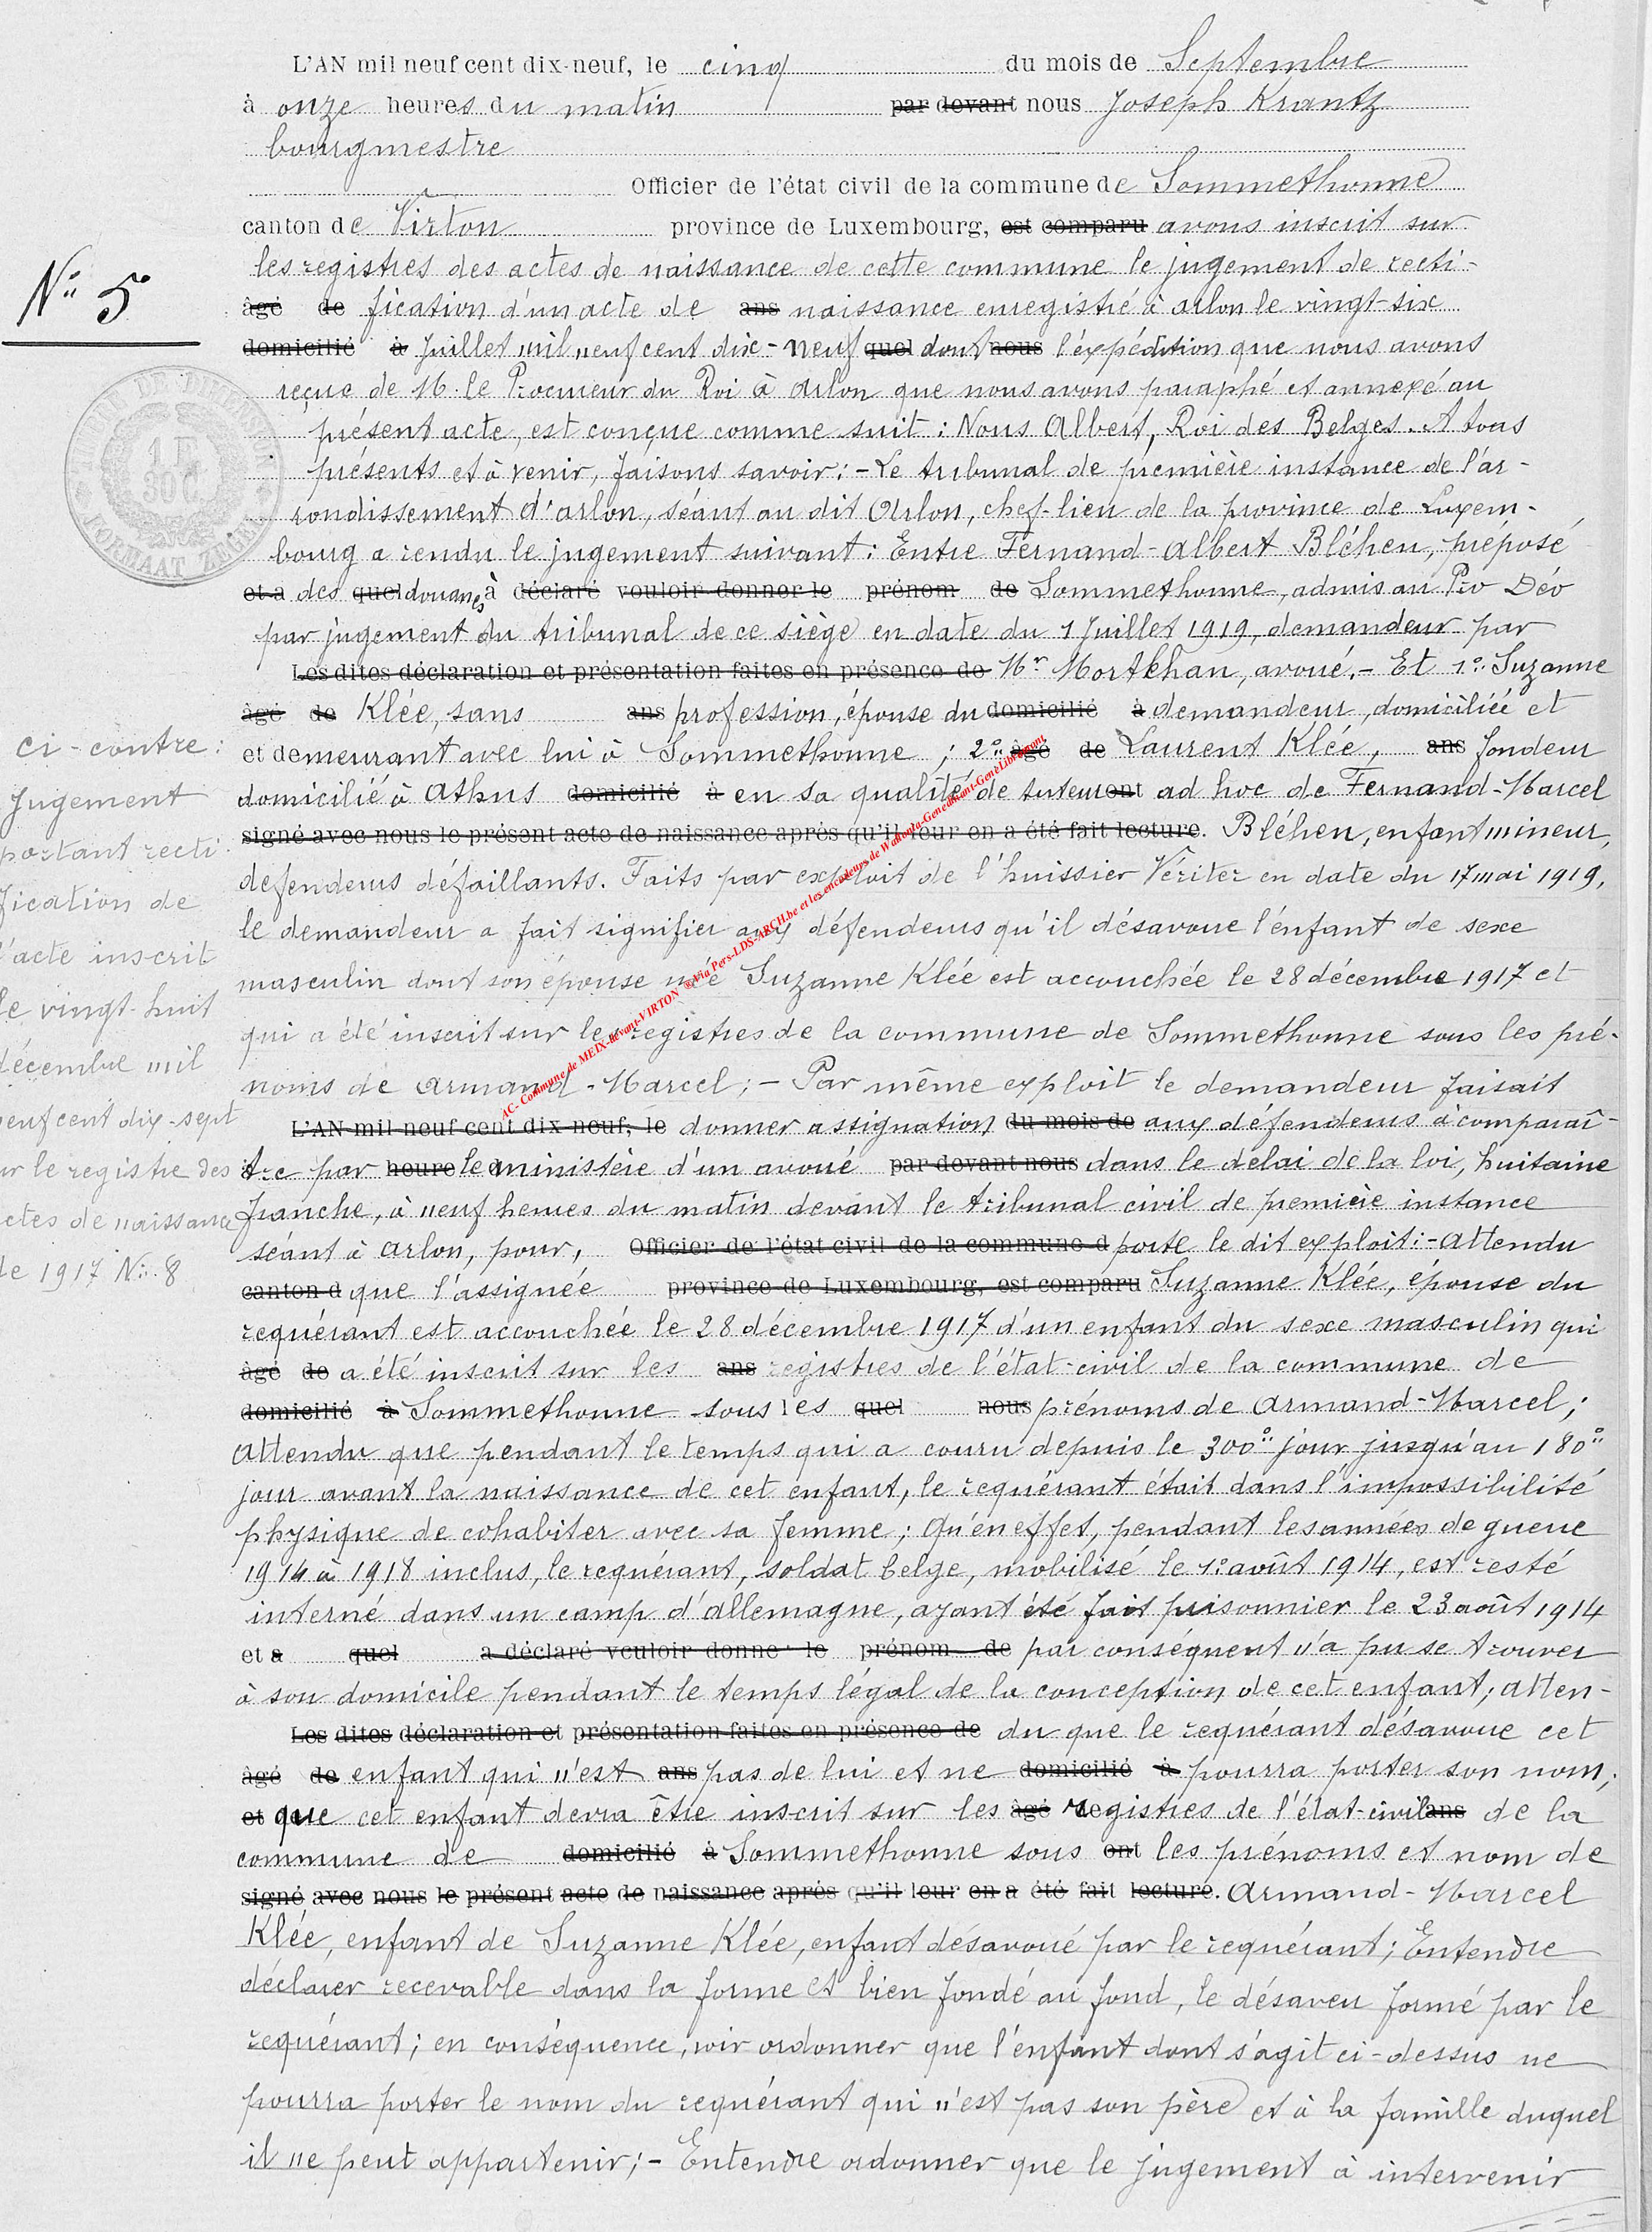 L'AN mil neuf cent dix-neuf, le cinq du mois de Septembre
à onze heures du matin par devant nous Joseph Krantz
bourgmestre
Officier de l'état civil de la commune de Sommethonne
canton de Virton province de Luxembourg, est comparu avons inscrit sur
les registres des actes de naissance de cette commune le jugement de recti-
N° 5
âgé de fication d'un acte de ans naissance enregistré à Arlon le vingt-six
domicilié à Juillet mil neuf cent dix-neuf quel dont nous l'expédition que nous avons
reçue de M. le Procureur du Roi à Arlon que nous avons paraphé et annexé au
présent acte, est conçue comme suit : Nous Albert, Roi des Belges. A tous
présents et à venir, faisons savoir : - Le tribunal de première instance de l'ar-
rondissement d'Arlon, séant au dit Arlon, chef-lieu de la province de Luxem-
bourg a rendu le jugement suivant : Entre Fernand-Albert Bléhen, préposé
et a des quel douanes à déclaré vouloir donner le prénom de Sommethonne, admis au Pro Déo
par jugement du tribunal de ce siège en date du 1 Juillet 1919, demandeur par
Les dites déclaration et présentation faites en présence de Mr Mortehan, avoué. - Et 1° Suzanne
âgé de Klée, sans ans profession, épouse du domicilié à demandeur, domiciliée et
et demeurant avec lui à Sommethonne ; 2° âgé de Laurent Klée, ans fondeur
domicilié à Athus domicilié à en sa qualité de tuteur ont ad hoc de Fernand-Marcel
signé avec nous le présent acte de naissance après qu'il leur en a été fait lecture. Bléhen, enfant mineur,
defendeurs défaillants. Faits par exploit de l'huissier Vériter en date du 17 mai 1919,
le demandeur a fait signifier aux défendeurs qu'il désavoue l'enfant de sexe
masculin dont son épouse née Suzanne Klée est accouchée le 28 décembre 1917 et
qui a été inscrit sur les registres de la commune de Sommethonne sous les pré-
noms de Armand-Marcel ; - Par même exploit le demandeur faisait
L'AN mil neuf cent dix-neuf, le donner assignation du mois de aux défendeurs à comparaî-
tre par heure le ministère d'un avoué par devant nous dans le délai de la loi, huitaine
franche, à neuf heures du matin devant le tribunal civil de première instance
séant à Arlon, pour, Officier de l'état civil de la commune d porte le dit exploit : - Attendu
canton d que l'assignée province de Luxembourg, est comparu Suzanne Klée, épouse du
requérant est accouchée le 28 décembre 1917 d'un enfant du sexe masculin qui
âgé de a été inscrit sur les ans registres de l'état-civil de la commune de
domicilié à Sommethonne sous les quel nous prénoms de Armand-Marcel ;
Attendu que pendant le temps qui a couru depuis le 300° jour jusqu'au 180°
jour avant la naissance de cet enfant, le requérant était dans l'impossibilité
physique de cohabiter avec sa femme ; Qu'en effet, pendant les années de guerre
1914 à 1918 inclus, le requérant, soldat belge, mobilisé le 1° août 1914, est resté
interné dans un camp d'Allemagne, ayant été fait prisonnier le 23 août 1914
et a quel a déclaré vouloir donner le prénom de par conséquent n'a pu se trouver
à son domicile pendant le temps légal de la conception de cet enfant ; atten-
Les dites déclaration et présentation faites en présence de du que le requérant désavoue cet
âgé de enfant qui n'est ans pas de lui et ne domicilié à pourra porter son nom,
et que cet enfant devra être inscrit sur les âgé registres de l'état-civil ans de la
commune de domicilié à Sommethonne sous ont les prénoms et nom de
signé avec nous le présent acte de naissance après qu'il leur en a été fait lecture. Armand-Marcel
Klée, enfant de Suzanne Klée, enfant désavoué par le requérant ; Entendre
déclarer recevable dans la forme et bien fondé au fond, le désaveu formé par le
requérant ; en conséquence, voir ordonner que l'enfant dont s'agit ci-dessus ne
pourra porter le nom du requérant qui n'est pas son père et à la famille duquel
il ne peut appartenir ; - Entendre ordonner que le jugement à intervenir
ci-contre :
Jugement
portant recti-
fication de
l'acte inscrit
le vingt-huit
décembre mil
neuf cent dix-sept
sur le registre des
actes de naissance
de 1917 N° 8
AC- Commune de MEIX-devant-VIRTON ©Via Pers-LDS-ARCH.be et les encodeurs de Wallonia-Geneamant-GeneLibrement